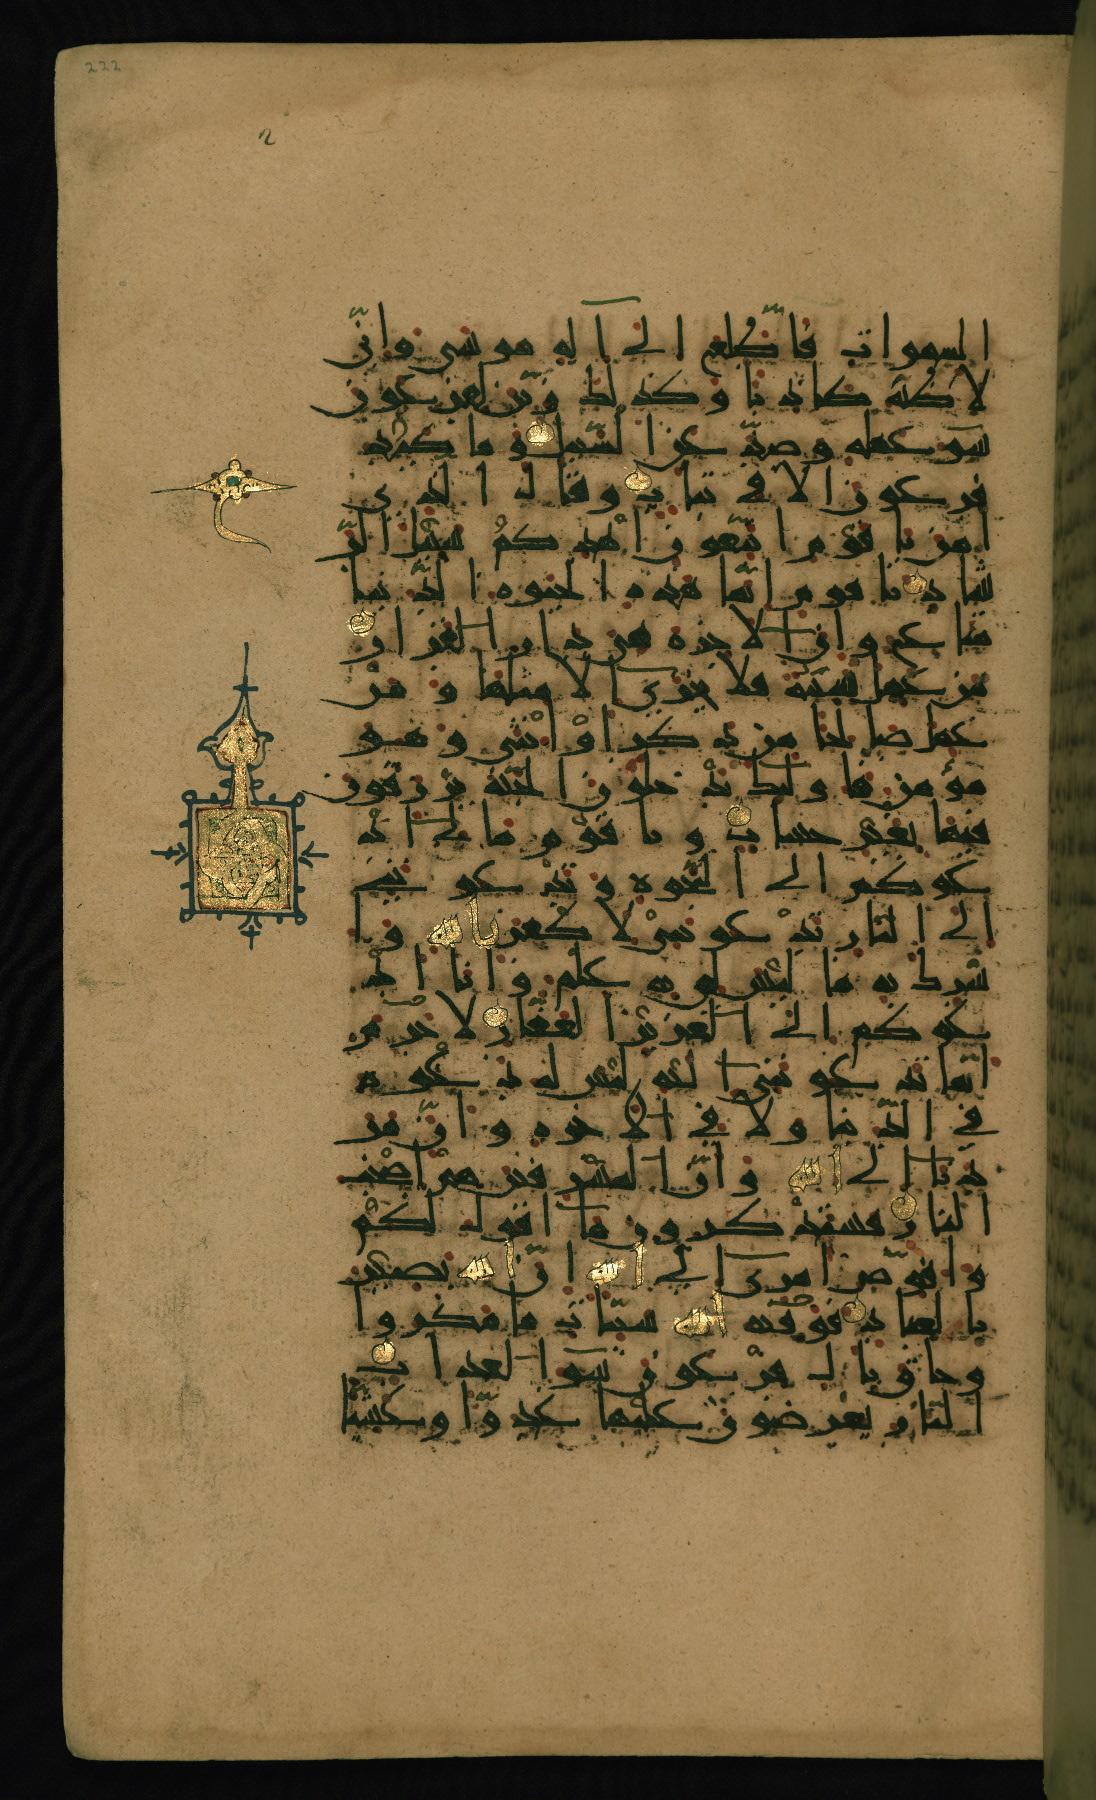 222
2
السموات فاطّلع الى اله موسى وانّى
لاظنّه كاذبا وكذلك زيّن لفرعون
سوء عمله وصدّ عن السّبيل وما كيد
فرعون الا فى تباب وقال الذى
امن ياقوم اتّبعون اهدكم سبيل الرّ
شاد ياقوم انّما هذه الحيوة الدّنيا
متاع وانّ الاخرة هى دار القرار
من عمل سيّئة فلا يجزى الا مثلها ومن
عمل صالحا من ذكر او انثى وهو
مؤمن فاولئك يدخلون الجنّة يرزقون
فيها بغير حساب وياقوم مالى اد
عوكم الى النّجوة وتدعوننى
الى النّار تدعوننى لاكفر بالله وا
شرك به ما ليس لى به علم وانا اد
عوكم الى العزيز الغفّار لا جرم
انّما تدعوننى اليه ليس له دعوة
فى الدّنيا ولا فى الاخرة وانّ مر
دّنا الى الله وانّ المسرفين هم اصحب
النّار فستذكرون ما اقول لكم
وافوّض امرى الى الله انّ الله بصير
بالعباد فوقيه الله سيّئات ما مكروا
وحاق بال فرعون سوء العذاب
النّار يعرضون عليها غدوّا وعشيّا